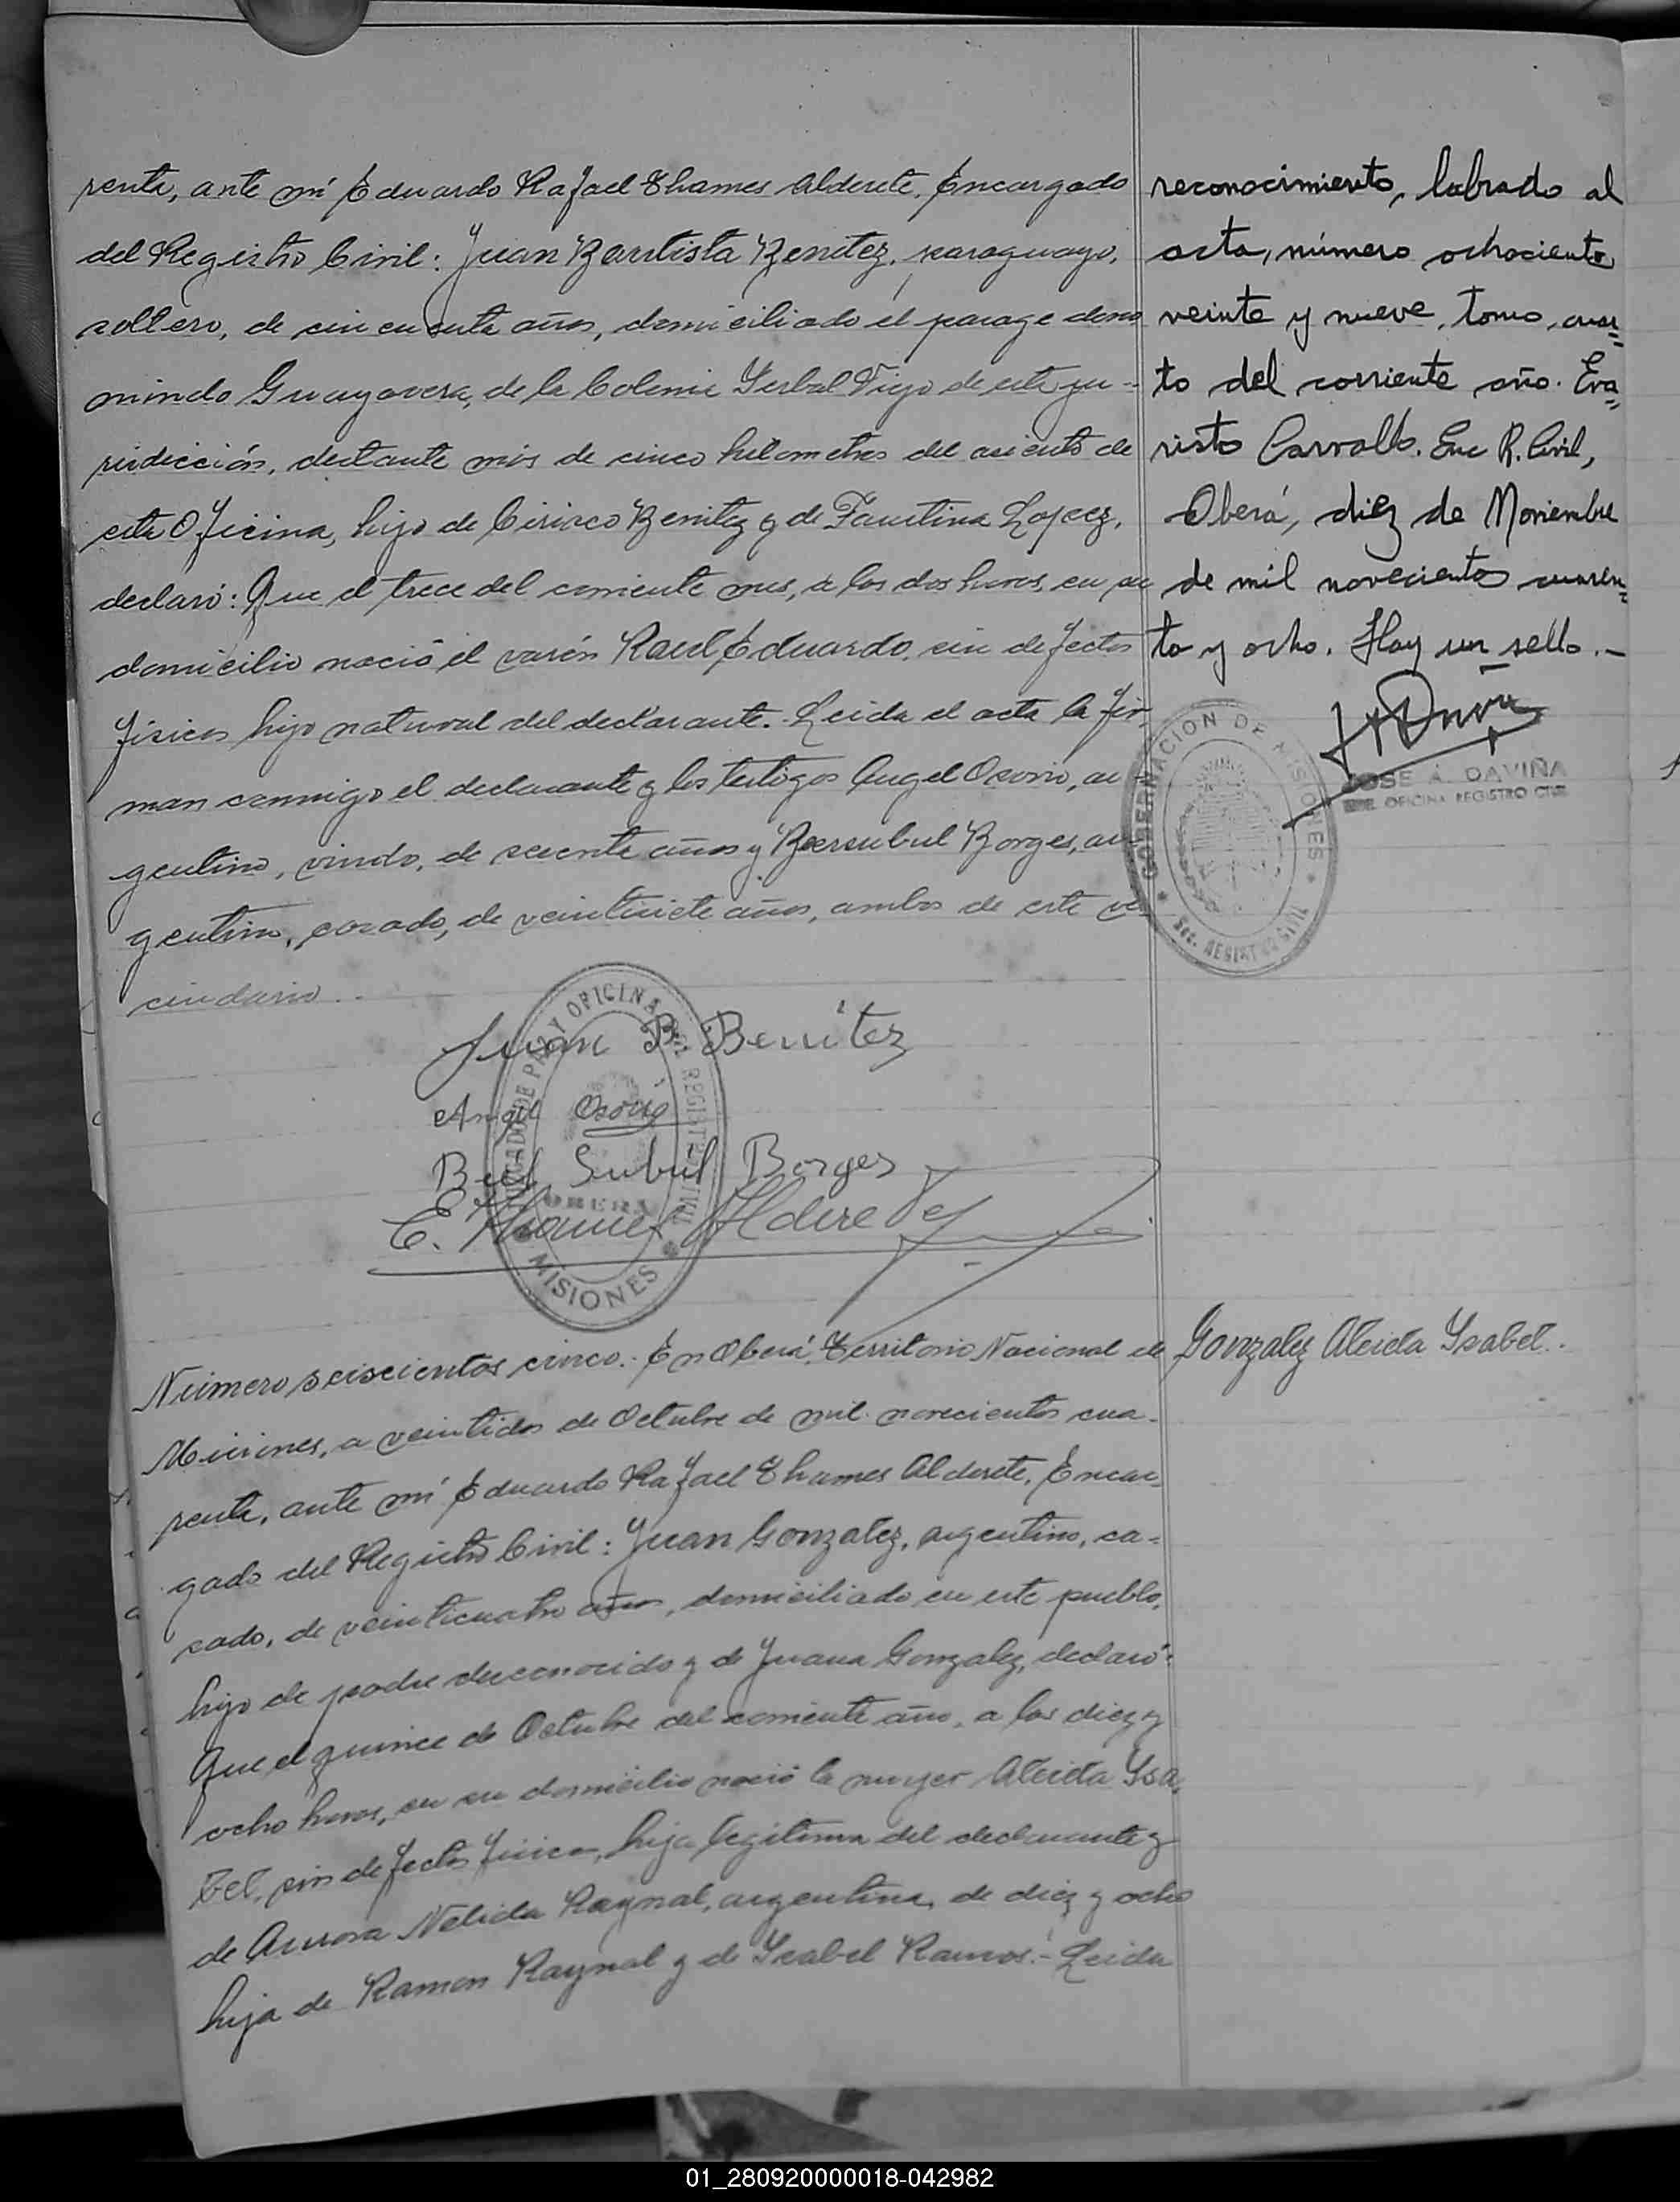 renta, ante mí Eduardo Rafael Thames Alderete, Encargado
del Registro Civil: Juan Bautista Benitez, paraguayo,
soltero, de cincuenta años, domiciliado el parage deno
minado Guayavera, de la Colonia Yerbal Viejo de esta ju-
risdicción, distante más de cinco kilometros del asiento de
esta Oficina, hijo de Ciriaco Benitez y de Faustina Lopez,
declaró: Que el trece del corriente mes, a las dos horas, en su
domicilio nació el varón Raul Eduardo, sin defectos
físicos hijo natural del declarante.- Leida el acta la fir
man conmigo el declarante y los testigos Angel Osorio, ar-
gentino, viudo, de sesenta años y Beersubul Borges, ar-
gentino, casado, de veintisiete años, ambos de este ve
cindario.-
reconocimiento, labrado al
acta, número ochociento
veinte y nueve, tomo, cuar=
to del corriente año. Eva=
risto Carvallo. Enc R. Civil,
Oberá, diez de Noviembre
de mil novecientos cuaren=
ta y ocho. Hay un sello.-
GOBERNACION DE MISIONES
Sec. REGISTRO CIVIL
JOSE A. DAVIÑA
OFICINA REGISTRO CIVIL
Juan B. Benitez
Angel Osorio
Borges
E. Thames Alderete
JUZGADO DE PAZ Y OFICINA DEL REGISTRO CIVIL
OBERA
MISIONES
Número seiscientos cinco.- En Oberá, Territorio Nacional de
Gonzalez Aleida Ysabel.
Misiones, a veintidos de Octubre de mil novecientos cua-
renta, ante mí Eduardo Rafael Thames Alderete, Encar
gado del Registro Civil: Juan Gonzalez, argentino, ca-
sado, de veinticuatro años, domiciliado en este pueblo,
hijo de padre desconocido y de Juana Gonzalez, declaró:
Que el quince de Octubre del corriente año, a las diez y
ocho horas, en su domicilio nació la mujer Aleida Ysa-
bel, sin defectos físicos, hija legitima del declarante y
de Aurora Nelida Raynal, argentina, de diez y ocho
hija de Ramon Raynal y de Ysabel Ramos.- Leida
01_280920000018-042982